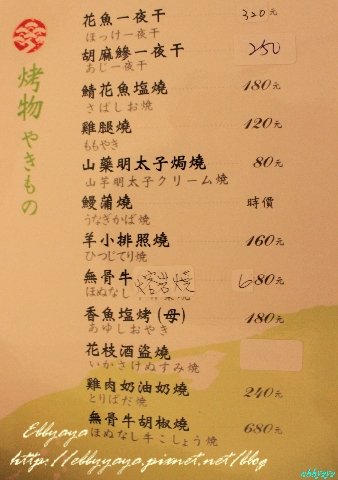 烤物 やきもの
花魚一夜干 320元
ほっけ一夜干
胡麻鰺一夜干 250
あじ一夜干
鯖花魚塩燒 180元
さばしお焼
雞腿燒 120元
ももやき
山藥明太子焗燒 80元
山芋明太子クリーム焼
鰻蒲燒 時價
うなぎかば焼
羊小排照燒 160元
ひつじてり焼
無骨牛熔岩燒 680元
ほぬなし
香魚塩烤(母) 180元
あゆしおやき
花枝酒盜燒
いかさけぬすみ焼
雞肉奶油奶燒 240元
とりばだ焼
無骨牛胡椒燒 680元
ほぬなし牛こしょう焼
Ebbyaya
http://ebbyyaya.pixnet.net/blog
ebbyaya